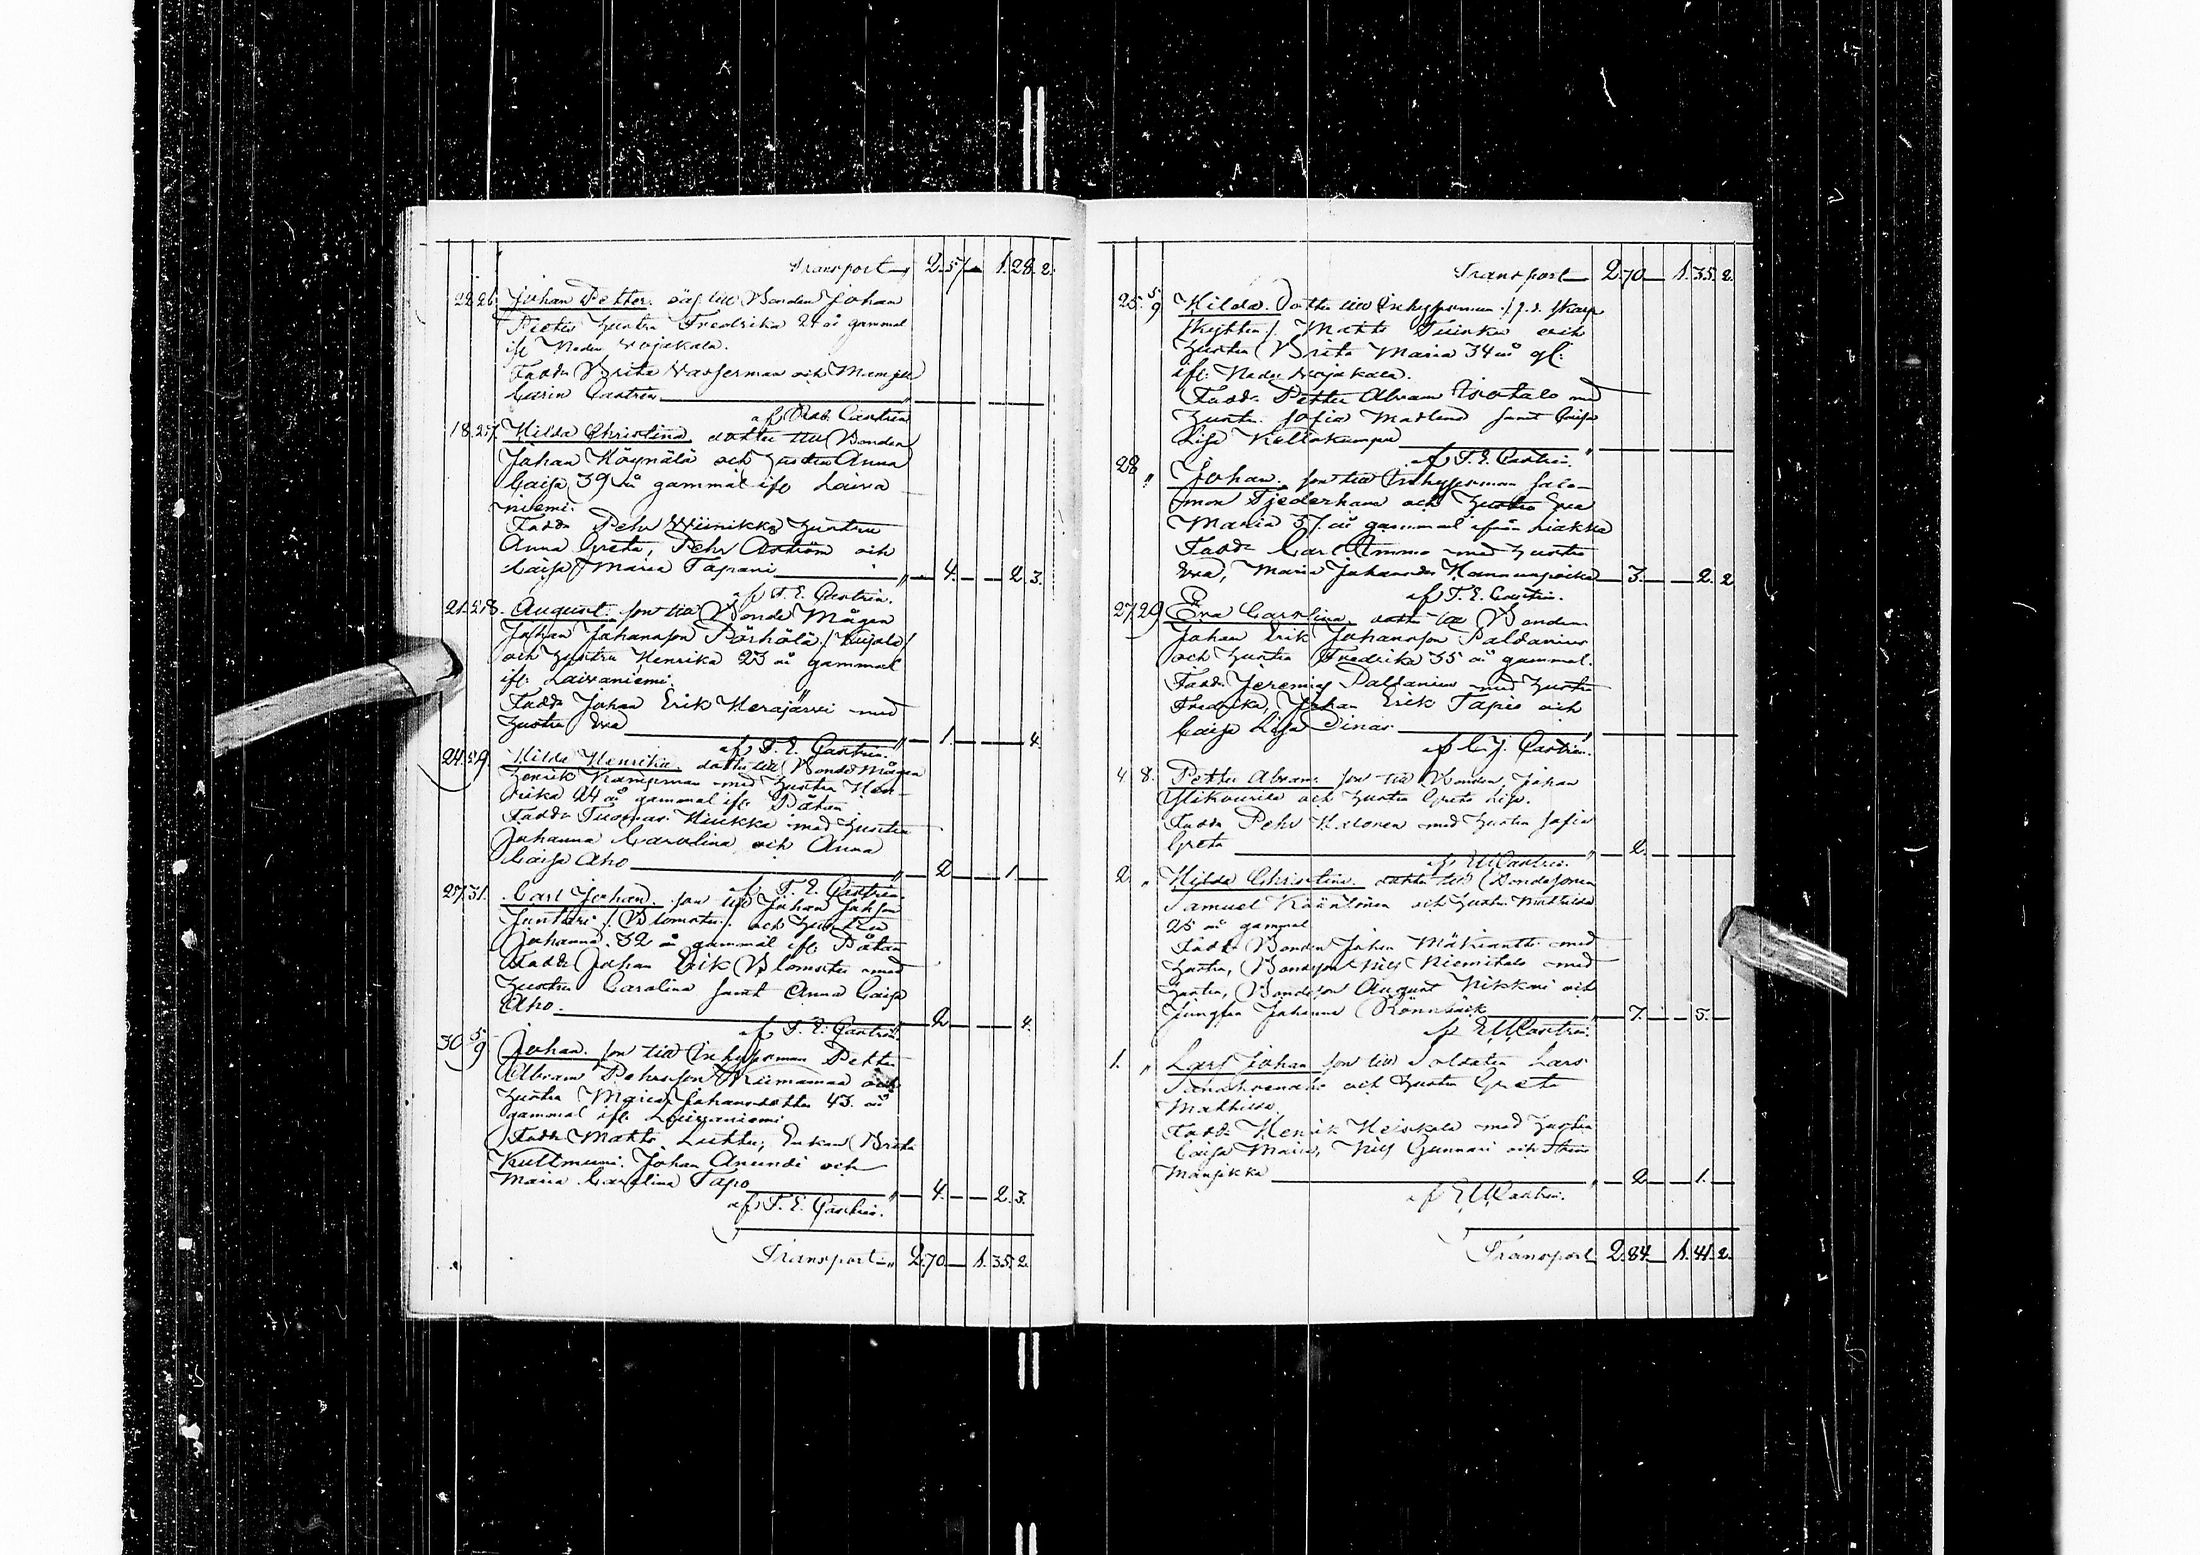 Transport 2.57 1.28.2.
22.26. Johan Petter. till Bonden Johan
Hustru Fredrika 24 år gammal
ifr Neder Vojakala.
Fadd: Brita Wasserman och Mamsell
Carin Castrén
af Castrén
18.27. Hilda Christina dotter till Bonden
Johan Höynälä och Hustru Anna
Caisa 39 år gammal ifr Laiva-
niemi.
Fadd: Pehr Wiinikka Hustru
Anna Greta, Pehr Åström och
Caisa Maria Tapani " 4. 2.3.
af F. E. Castrén.
21.28. August. son till Bonde Mågen
Johan Johansson Pörhölä /: Kujala :/
och Hustru Henrika 23 år gammal
ifr: Laivaniemi.
Fadd: Johan Erik Herajärvi med
Hustru Eva " 1. 4.
af F. E. Castrén.
24.29. Hilda Henrika. dotter till Bonde Mågen
Henrik Kampman med Hustru Hen-
rika 24 år gammal ifr: Påtan
Fadd: Tuomas Hiukka med Hustru
Johanna Carolina och Anna
Caisa Aho " 2 1.
af F. E. Castrén.
27.31. Carl Johan. son till Johan Johsson
Juntura /: Blomster :/ och Hustru
Johanna. 32 år gammal ifr: Påtan
Fadd: Johan Erik Blomster med
Hustru Carolina samt Anna Caisa
Aho. 2 4.
af F. E. Castrén.
30 5/9 Johan. son till Inhysesman Petter
Abram Pehrsson Niemimaa och
Hustru Maria Johansdotter 43. år
gammal ifr. Laivaniemi
Fadd: Matts Luttu, Enkan Brita
Kultmuni. Johan Anundi och
Maria Carolina Tapo " 4. 2.3.
af F. E. Castrén.
Transport " 2.70 1.35.2.
Transport 2.70 1.35.2.
25. 5/9 Hilda. Dotter till Inhysesman /: f.d. skarp
skytten :/. Matts Tuiska och
Hustru Brita Maria 34 år gl:
ifr: Neder Vojakala.
Fadd: Petter Abram Isotalo med
Hustru Sofia Matlena samt Caisa
Lisa Kellokumpu "
af F. E. Castrén.
28 " Johan. son till Inhysesman Salo-
mon Fjederhane och Hustru Eva
Maria 37. år gammal ifrån Liakka
Fadd: Carl Ammo med Hustru
Eva, Maria Johansdr Hannunpoika 3. 2.2
af F. E. Castrén.
27.29 Eva Carolina. dotter till Bonden
Johan Erik Johansson Paldanius
och Hustru Fredrika 35 år gammal.
Fadd: Jeremias Paldanius med Hustru
Fredrika, Johan Erik Tapio och
Caisa Lisa "
af C. J. Castrén.
4. 8. Petter Abram. son till Bonden Johan
Ylikunika och Hustru Greta Lisa.
Fadd: Pehr med Hustru Sofia
Greta " 2.
af E W Castrén.
2. " Hilda Christina. dotter till Bondesonen
Samuel Kääntönen och Hustru
25 år gammal
Fadd: Bonden Johan Mäkiantti med
Hustru, Bondeson Nils Niemitalo med
Hustru, Bondeson August Nikkari och
Jungfru Johanna Rönnbäck " 7. 5.
af E W Castrén.
1. " Lars Johan son till Soldaten Lars
och Hustru Greta
Mathilda.
Fadd: Henrik Heiskala med Hustru
Caisa Maria, Nils Gunnari och Stina
Mansikka " 2 1.
af E W Castrén.
Transport 2.84 1.41.2.